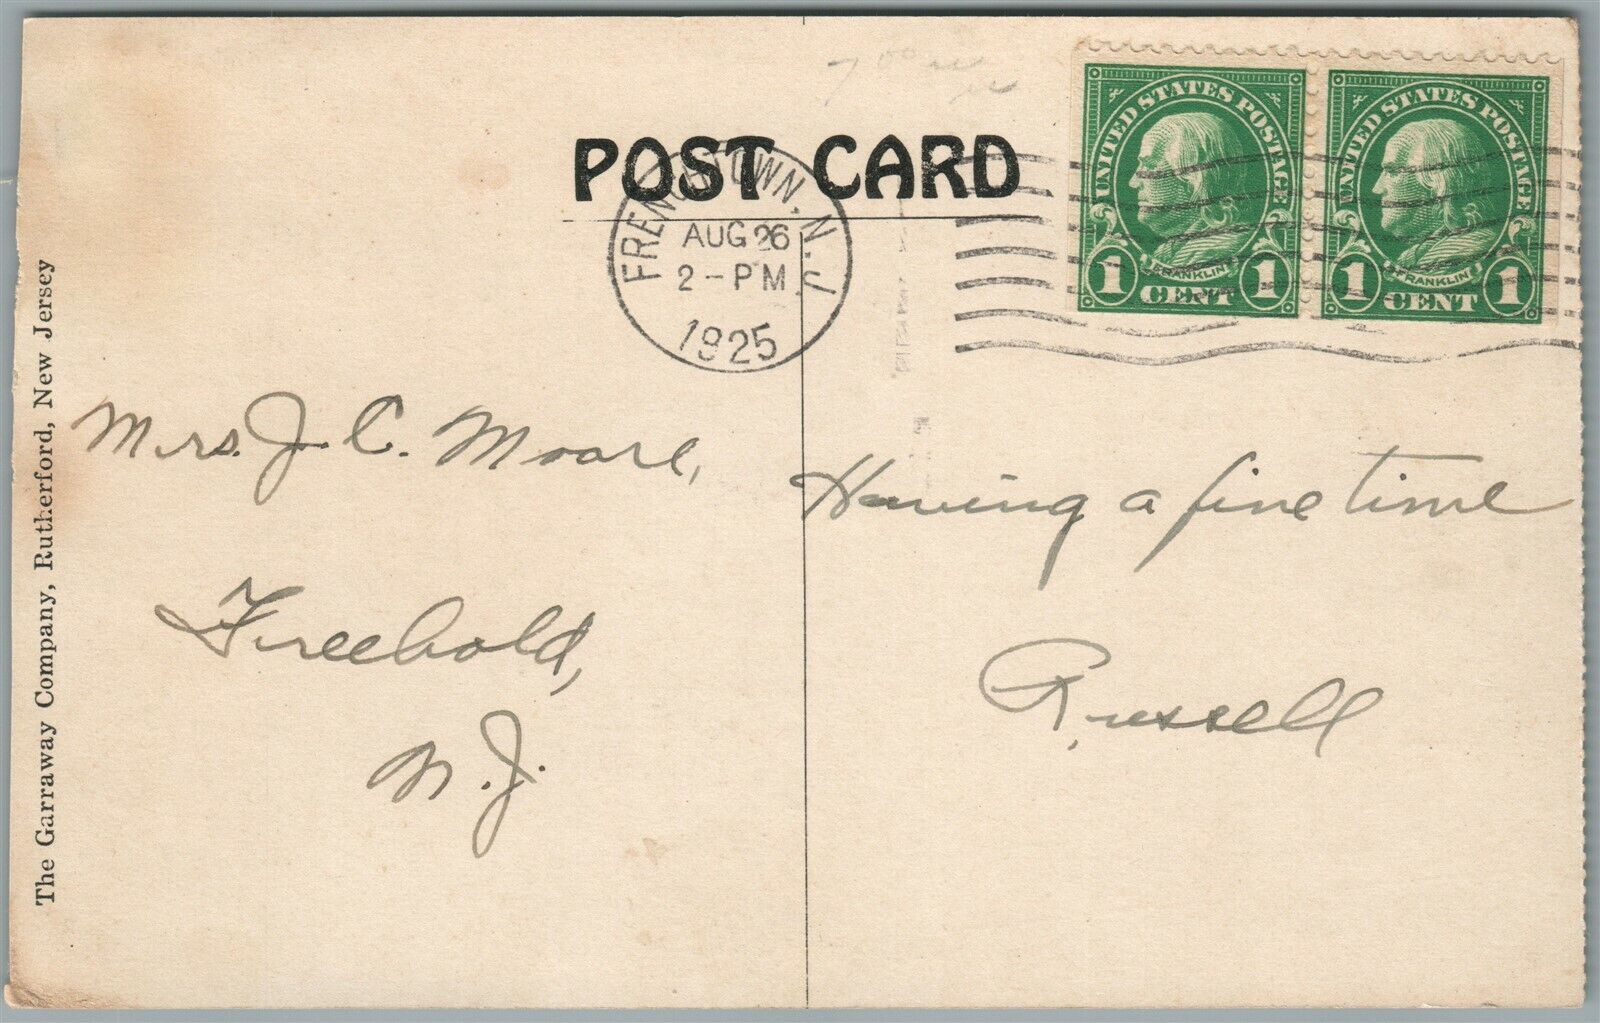 POST CARD
FRENCHTOWN, N.J.
AUG 26
2-PM
1925
UNITED STATES POSTAGE
FRANKLIN
1 CENT 1
UNITED STATES POSTAGE
FRANKLIN
1 CENT 1
Mrs. J. C. Moore,
Freehold,
N. J.
Having a fine time
Russell
The Garraway Company, Rutherford, New Jersey